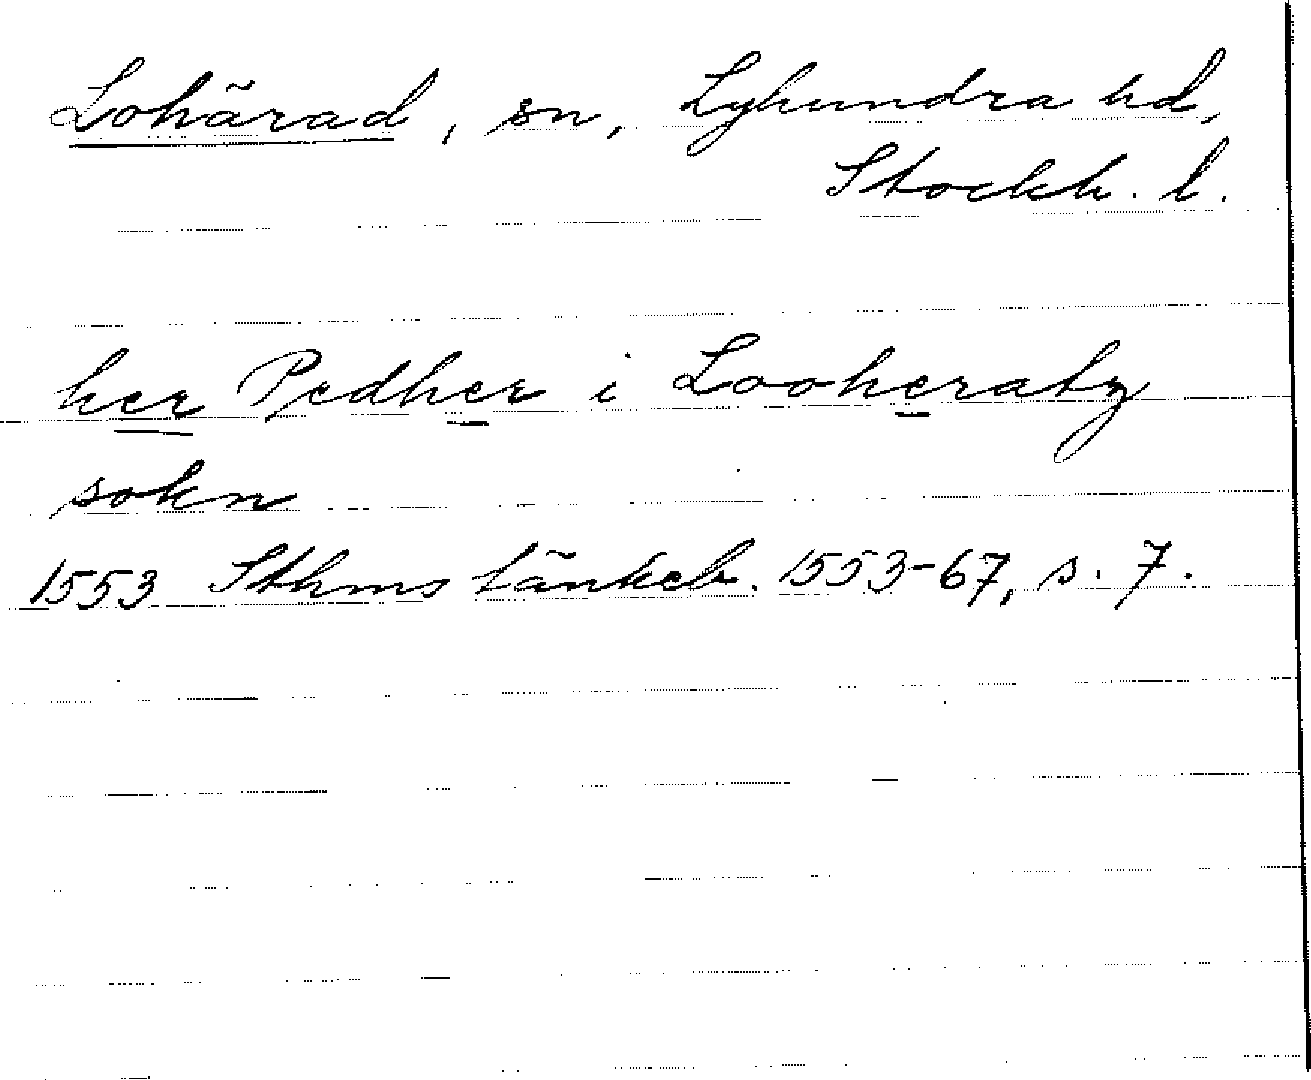 Lohärad, sn, Lyhundra hd,
Stockh. l.
her Pedher i Looheratz
sokn
1553 Sthms tänkeb. 1553-67, s. 7.